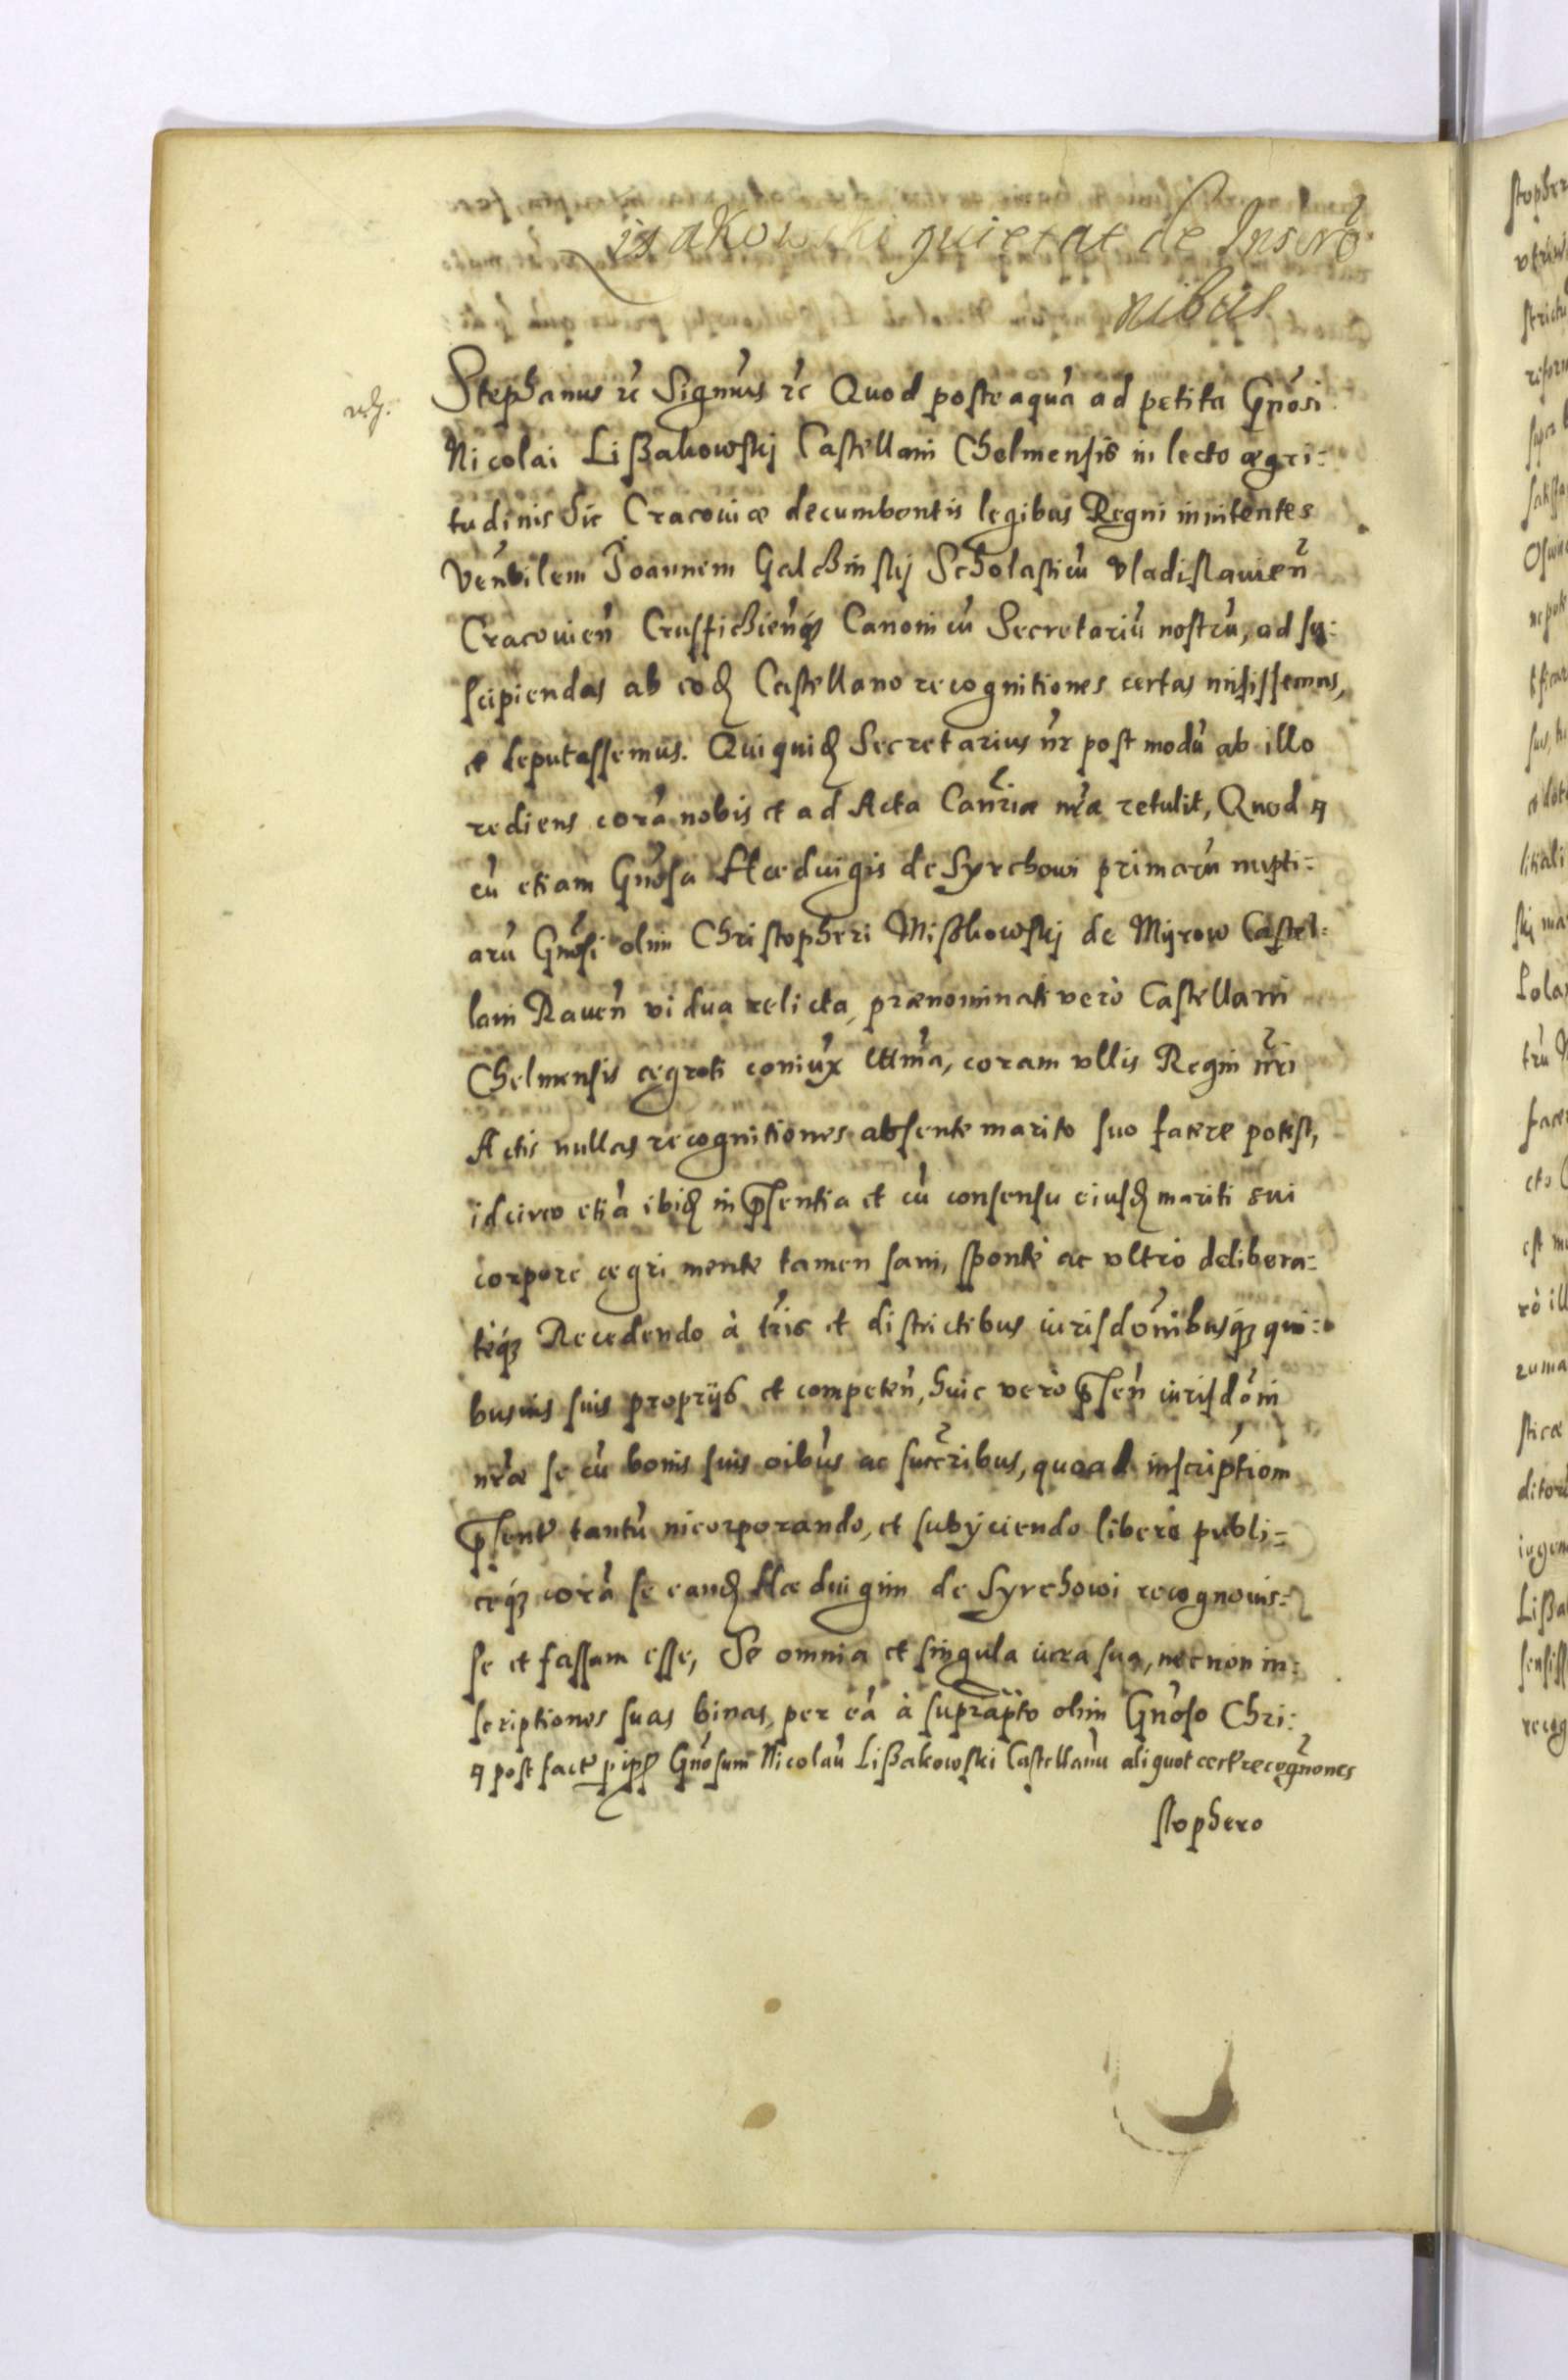 Lißakowski quietat de Inscrō
nibus
Stephanus rc̃ Signm̃us rc̃ Quod posteaquā ad petita Gnōsi
Nicolai Lißakowskj Castellani Chelmensis in lecto ægri:
tudinis hic Cracouiæ decumbentis legibus Regni innitentes
Venb̃ilem Joannem Galchinskj Scholasticū Vladislauien̄
Cracouien̄ Crusfichien̄q₃ Canonicū Secretariū nostrū, ad su:
scipiendas ab eod̃ Castellano recognitiones certas misissemus,
et deputassemus. Qui quid̃ Secretarius nr̄ post modū ab illo
rediens corā nobis et ad Acta Canr̄iæ nrāe retulit, Quod ꟼ
cū etiam Gnōsa Hæduigis de Syrchowi primarū nupti:
arū Gnōsi olim Christopheri Mißkowskj de Myrow Castel:
lani Rauen̄ vidua relicta, prænominati verò Castellani
Chelmensis ægroti coniux lttm̄a, coram vllis Regni nrī
Actis nullas recognitiones absente marito suo facere potest,
idcirco etiā ibid̃ in p̄sentia et cū consensu eiusd̃ mariti sui
corpore ægri mente tamen sani, sponte ac vltro delibera:
teq́₃ Recedendo à trīs et districtibus iurisdōnibusq́₃ qui:
busuis suis proprijs et competen̄, huic verò p̄sen̄ iurisdōni
nrāe se cū bonis suis oībus ac succr̄ibus, quoad inscriptiom
p̄sent̃ tantū incorporando, et subijciendo liberè publi:
ceq́₃ corā se eand̃ Hæduigim de Syrchowi recognouis:
se et fassam esse, Se omnia et singula iura sua, necnon in:
scriptiones suas binas, per eā à suprāpto olim Gnōso Chri:
ꟼ post fact̃ p̱ ip̃ Gnōsum Nicolaū Lißakowski Castellanū aliquot cert̃ recognōnes
stophero